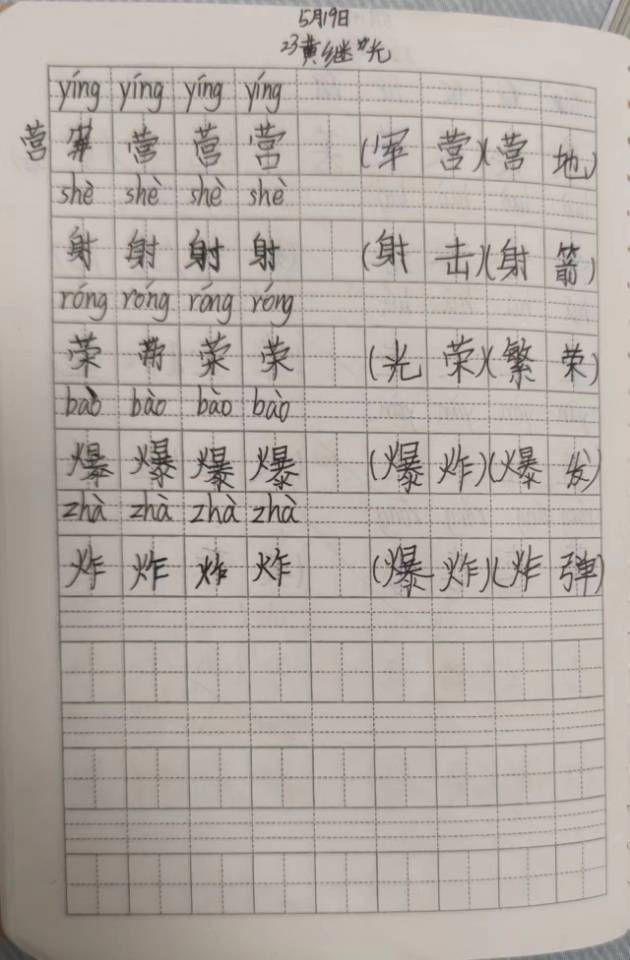 5月19日
23黄继光
yíng yíng yíng yíng
营 营 营 营 (军营)(营地)
shè shè shè shè
射 射 射 射 (射击)(射箭)
róng róng róng róng
荣 荣 荣 (光荣)(繁荣)
bào bào bào bào
爆 爆 爆 爆 (爆炸)(爆发)
zhà zhà zhà zhà
炸 炸 炸 炸 (爆炸)(炸弹)